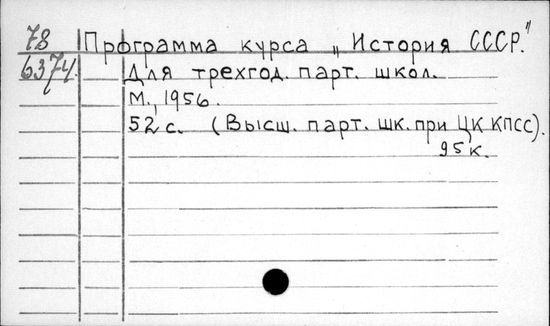 78 Программа курса „История СССР."
6374. Для трехгод. парт. школ.
М., 1956.
52 с. (Высш. парт. шк. при ЦК КПСС).
95 к.